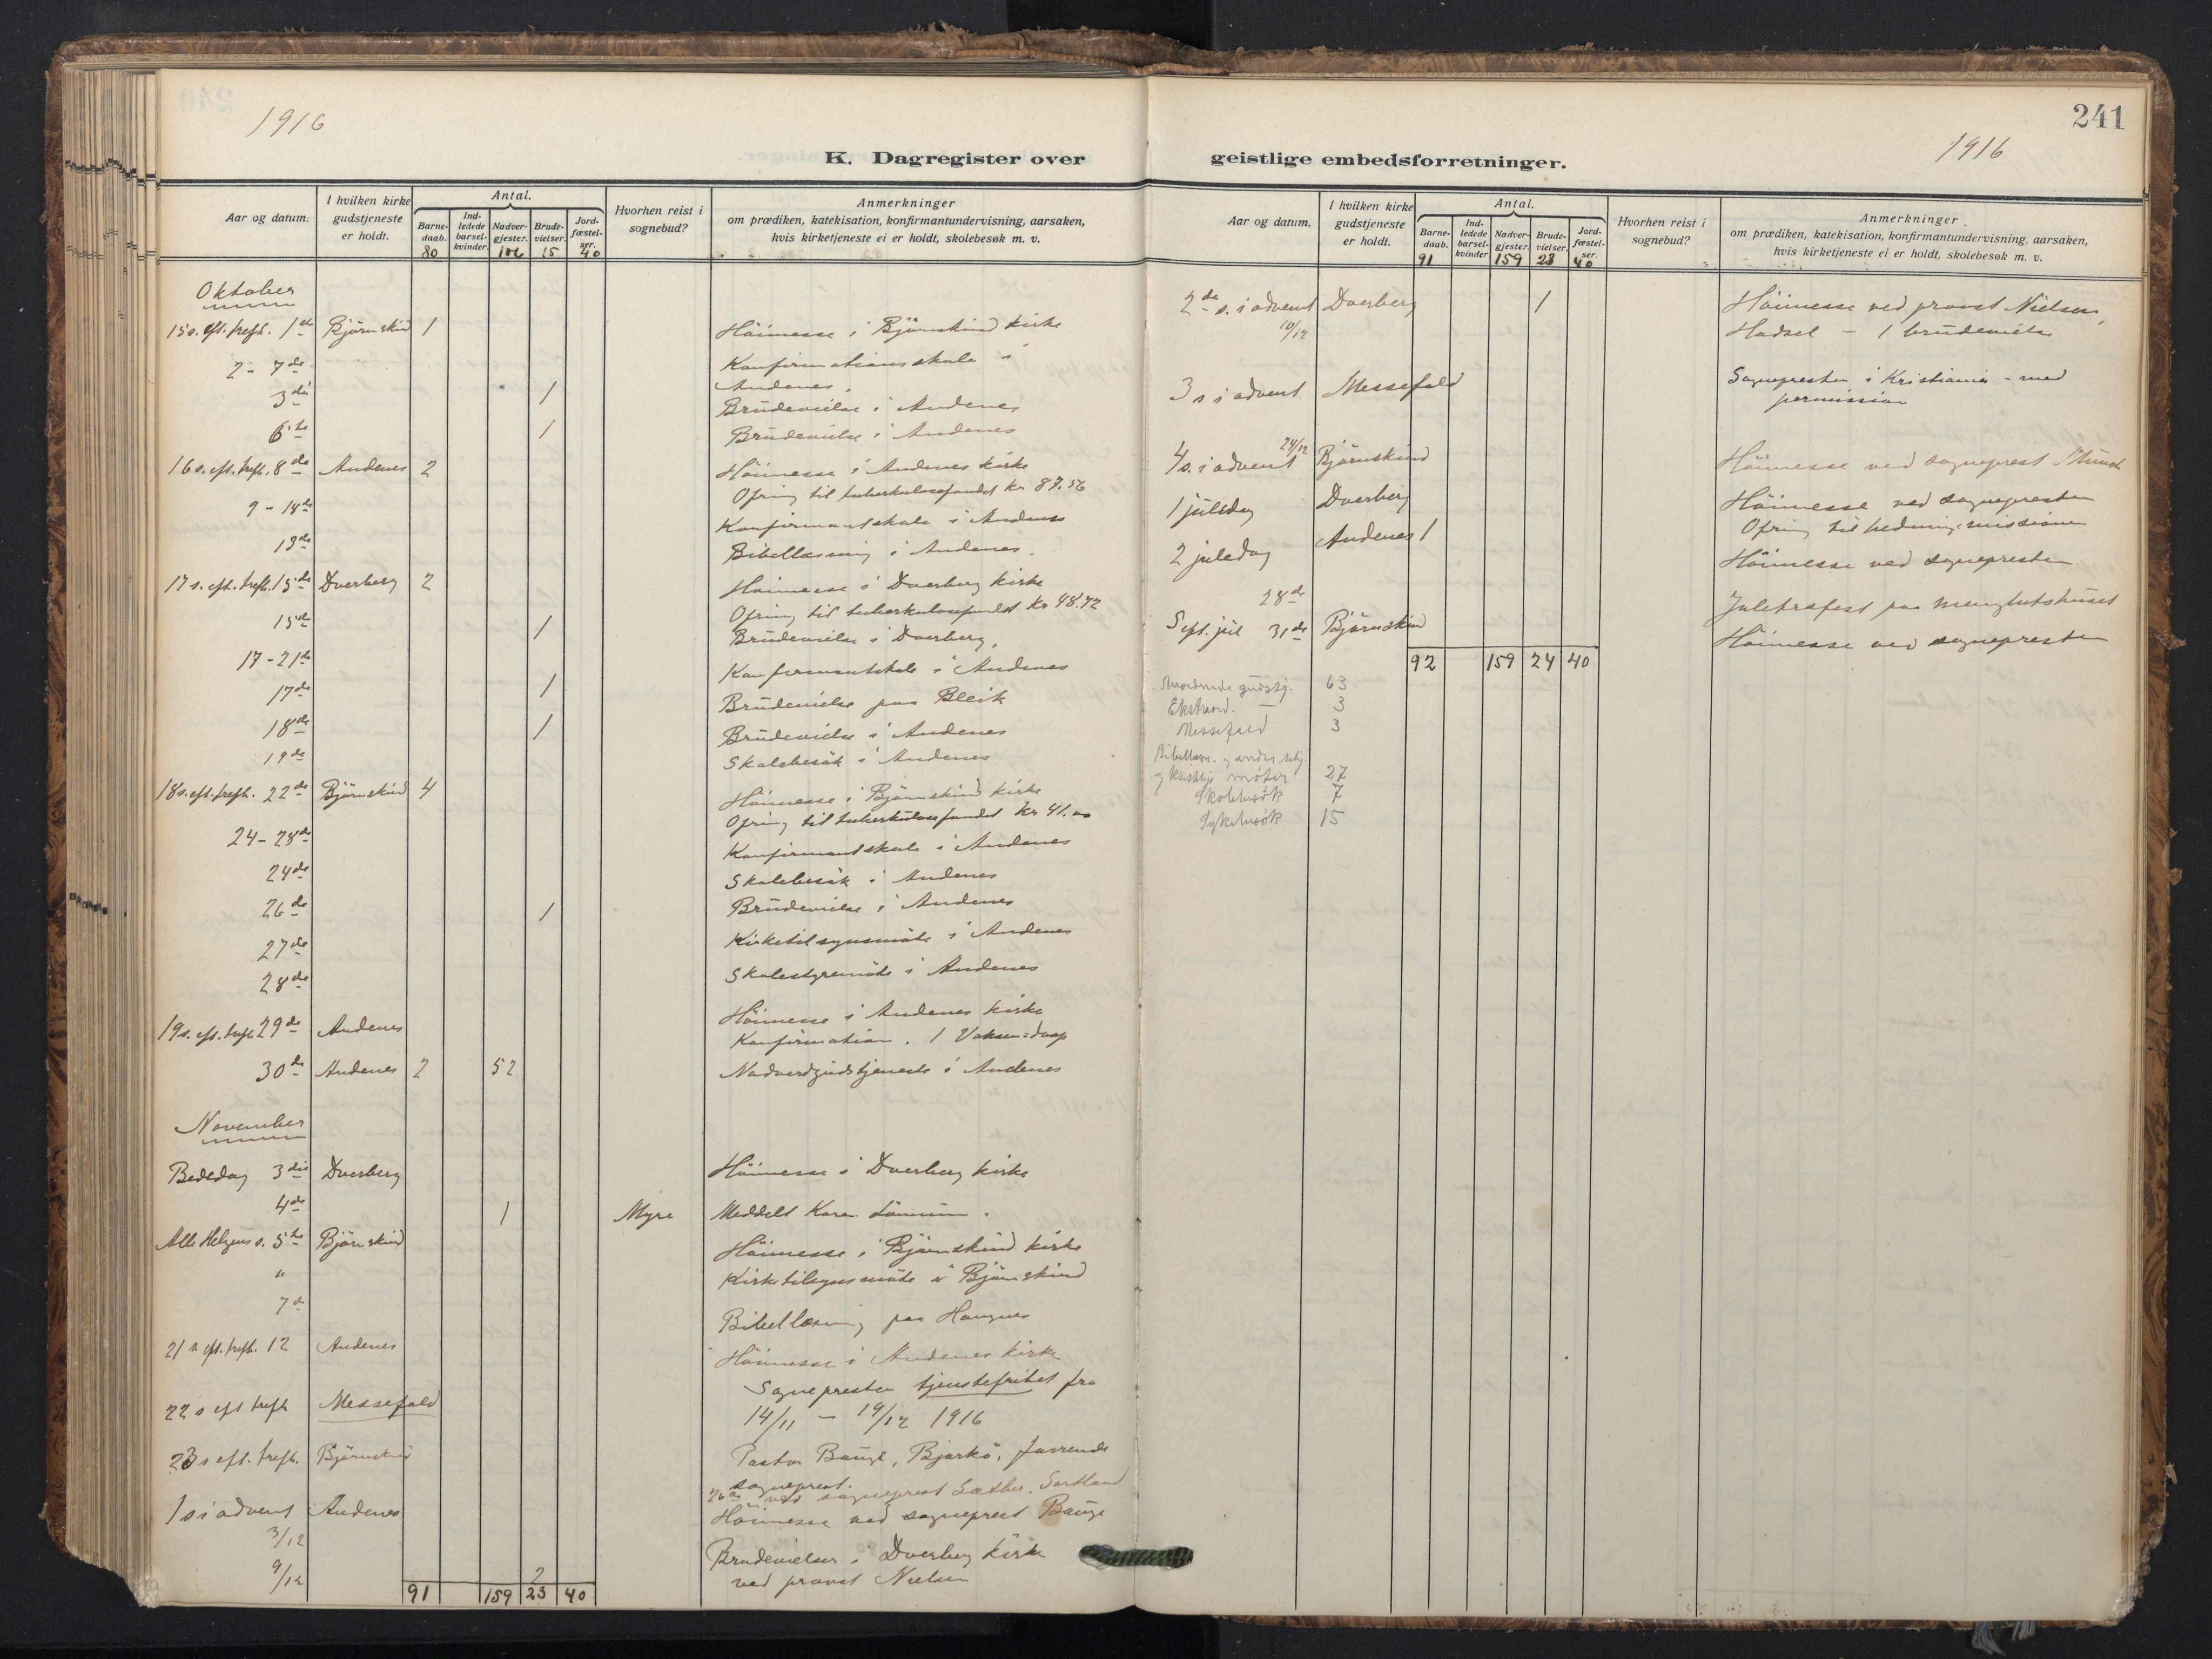 1916
K. Dagregister over
Aar og datum.
I hvilken kirke gudstjeneste er holdt.
Antal.
Barne-daab.
Ind-ledede barsel-kvinder.
Nadver-gjester.
Brude-vielser.
Jord-fæstel-ser.
Hvorhen reist i sognebud?
Anmerkninger
om prædiken, katekisation, konfirmantundervisning, aarsaken,
hvis kirketjeneste ei er holdt, skolebesøk m. v.
80 106 15 40
Oktober
15 s. eft. trefh. 1ste Bjørnskind 1 Høimesse i Bjørnskind kirke
2 - 7de Konfirmationsskole i
Andenes.
3die 1 Brudevielse i Andenes
6te 1 Brudevielse i Andenes
16 s. eft. trefh. 8de Andenes 2 Høimesse i Andenes kirke
Ofring til tuberkulosefondet kr 87.56
9 - 14de Konfirmantskole i Andenes
13de Bibellæsning i Andenes.
17 s. eft. trefh. 15de Dverberg 2 Høimesse i Dverberg kirke
Ofring til tuberkulosefondet kr 48.72
15de 1 Brudevielse i Dverberg.
17 - 21de Konfirmantskole i Andenes
17de 1 Brudevielse paa Bleik
18de 1 Brudevielse i Andenes
19de Skolebesøk i Andenes
18 s. eft. trefh. 22de Bjørnskind 4 Høimesse i Bjørnskind kirke
Ofring til tuberkulosefondet kr 41.00
24 - 28de Konfirmantskole i Andenes
24de Skolebesøk i Andenes
26de 1 Brudevielse i Andenes
27de Kirketilsynsmøte i Andenes
28de Skolestyremøte i Andenes
19 s. eft. trefh. 29de Andenes Høimesse i Andenes kirke
Konfirmation. 1 Voksen=daap
30de Andenes 2 52 Nadverdgudstjeneste i Andenes
November
Bededag 3die Dverberg Høimesse i Dverberg kirke
4de 1 Myre Meddelt Karen
Alle Helgens s. 5te Bjørnskind Høimesse i Bjørnskind kirke
" Kirketilsynsmøte i Bjørnskind
7de Bibellæsning paa Haugnes
21 s. eft. trefh. 12 Andenes Høimesse i Andenes kirke
Sognepresten tjenstefrihet fra
22 s eft trefh Messefald 14/11 - 19/12 1916
23 s eft. trefh. Bjørnskind Pastor Bauge, Bjarkø, fungerende
sogneprest.
26de ved sogneprest Sæther, Sortland
1 s i advent Andenes Høimesse ved sogneprest Bauge
3/12
9/12 2 Brudevielser i Dverberg kirke
ved provst Nielsen
91 159 23 40
241
1916
geistlige embedsforretninger.
Aar og datum.
I hvilken kirke gudstjeneste er holdt.
Antal.
Barne-daab.
Ind-ledede barsel-kvinder
Nadver-gjester.
Brude-vielser.
Jord-fæstel-ser.
Hvorhen reist i sognebud?
Anmerkninger
om prædiken, katekisation, konfirmantundervisning, aarsaken,
hvis kirketjeneste ei er holdt, skolebesøk m. v.
91 159 23 40
2de s. i advent Dverberg 1 Høimesse ved provst Nielsen,
10/12 Hadsel - 1 brudevielse
3 s i advent Messefald Sognepresten i Kristiania - med
permission
4 s. i advent 24/12 Bjørnskind Høimesse ved sogneprest Munch
1 juledag Dverberg Høimesse ved sognepresten
Ofring til hedningemissionen
2 juledag Andenes 1 Høimesse ved sognepresten
28de Juletræfest paa menighetshuset
S. eft. jul 31de Bjørnskind Høimesse ved sognepresten
92 159 24 40
Anordnede gudstj. 63
Ekstraord. - 3
Messefald 3
Bibellæsn. og andre relig.
og kirkelige møter 27
Skolebesøk 7
Sykebesøk 15